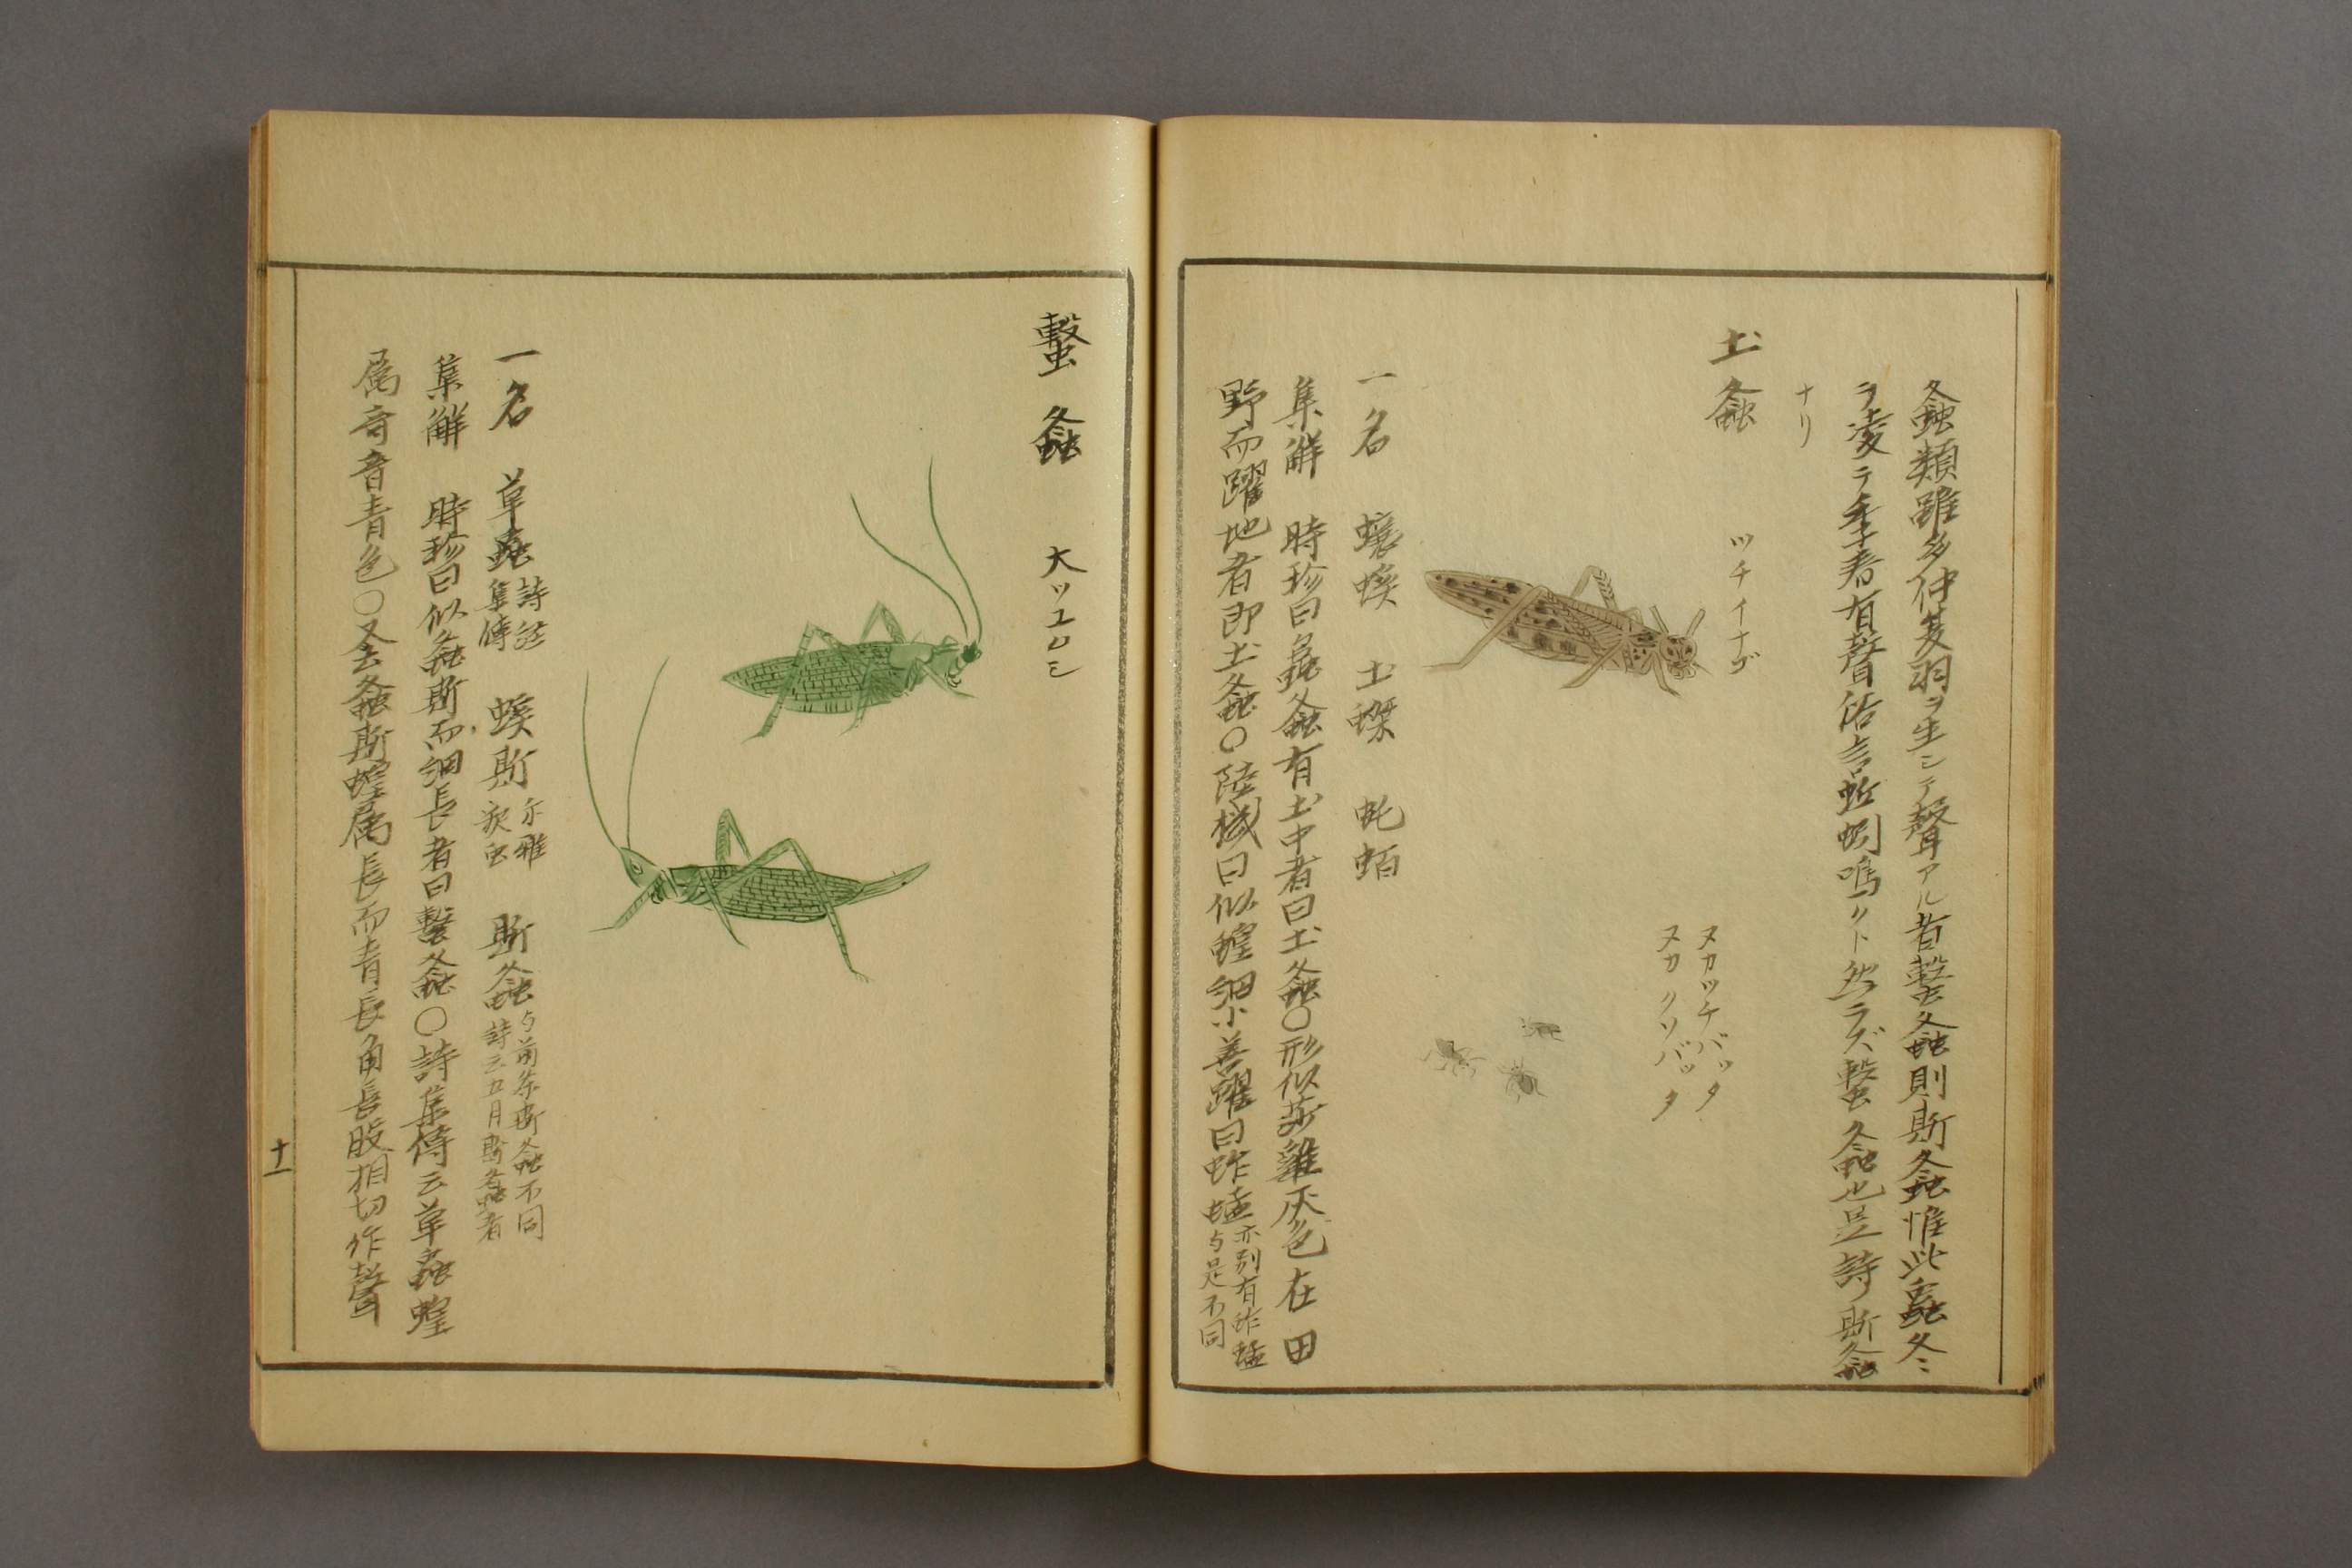 螽類雖多仲夏羽ヲ生シテ聲アル者螿螽則斯螽惟此蟲冬
ヲ凌テ季春有聲俗言蚯蚓鳴クト然ラズ螿螽也是詩斯螽
ナリ
土螽 ツチイナゴ
ヌカツチバッタ
ヌカクソバッタ
一名 蠰螇 土磔 虴蛨
集解 時珍曰蟲螽有土中者曰土螽〇形似莎雞灰色在田
野而躍地者即土螽〇陸機曰似蝗細小善躍曰蚱蜢亦別有蚱蜢与是不同
螿螽 大ツユムシ
一名 草蟲詩經集傳 螇斯尓雅 斯螽与前条斯螽不同詩云五月斯螽者
集解 時珍曰似螽斯而細長者曰螿螽〇詩集傳云草蟲蝗
属奇音青色〇又云螽斯蝗属長而青長角長股相切作聲
十一